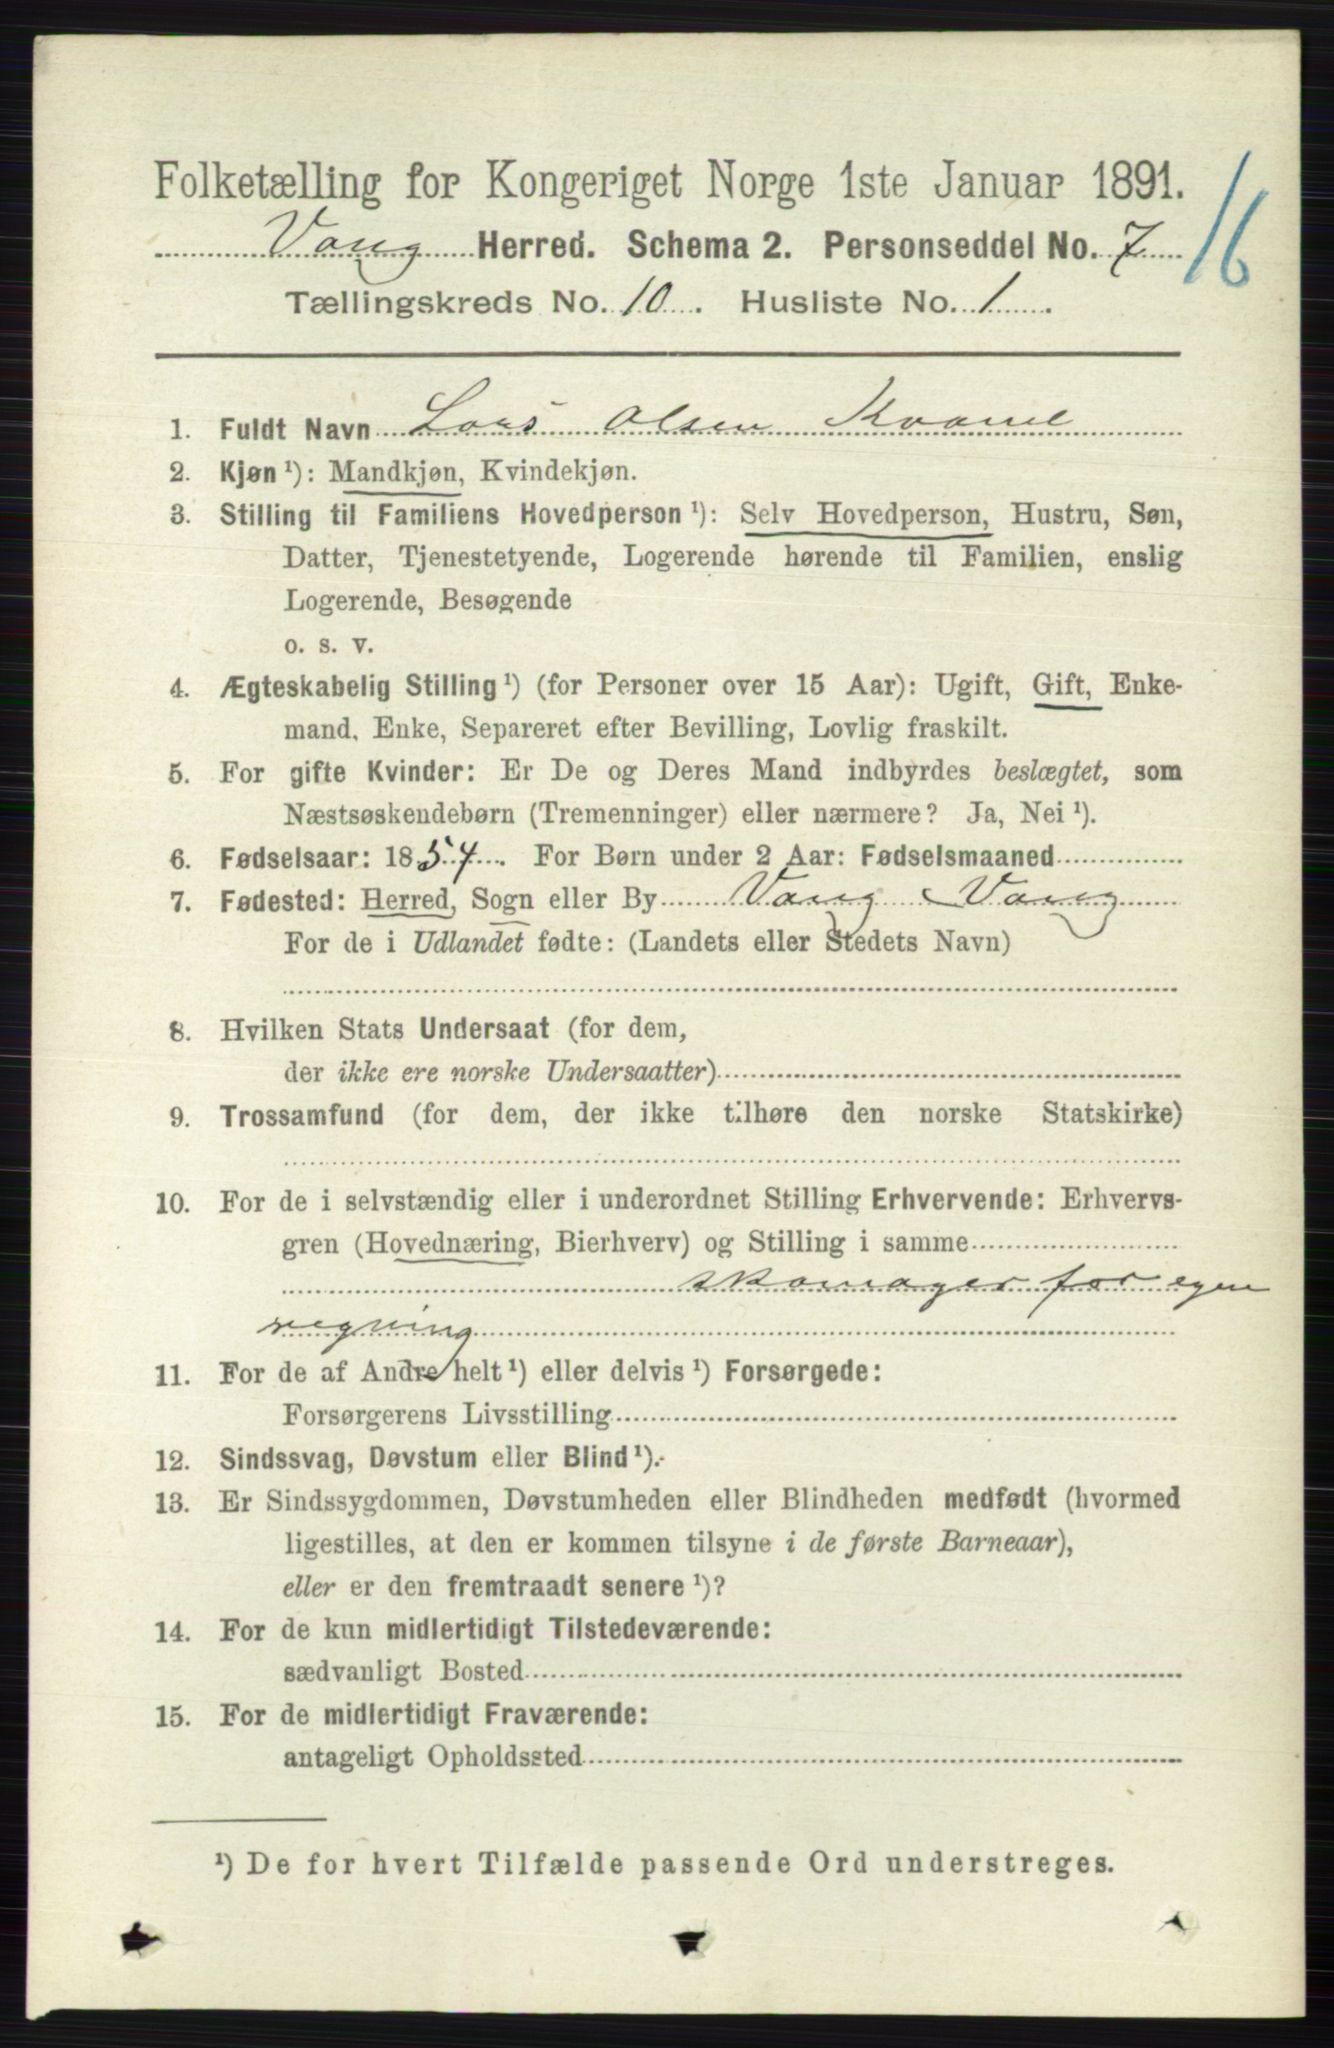 Folketælling for Kongeriget Norge 1ste Januar 1891.
16
Vang Herred. Schema 2. Personseddel No. 7
Tællingskreds No. 10. Husliste No. 1.
1. Fuldt Navn Lars Olsen Kvame
2. Kjøn ¹): Mandkjøn, Kvindekjøn.
3. Stilling til Familiens Hovedperson ¹): Selv Hovedperson, Hustru, Søn,
Datter, Tjenestetyende, Logerende hørende til Familien, enslig
Logerende, Besøgende
o. s. v.
4. Ægteskabelig Stilling ¹) (for Personer over 15 Aar): Ugift, Gift, Enke-
mand, Enke, Separeret efter Bevilling, Lovlig fraskilt.
5. For gifte Kvinder: Er De og Deres Mand indbyrdes beslægtet, som
Næstsøskendebørn (Tremenninger) eller nærmere? Ja, Nei ¹).
6. Fødselsaar: 1854. For Børn under 2 Aar: Fødselsmaaned
7. Fødested: Herred, Sogn eller By Vang Vang
For de i Udlandet fødte: (Landets eller Stedets Navn)
8. Hvilken Stats Undersaat (for dem,
der ikke ere norske Undersaatter)
9. Trossamfund (for dem, der ikke tilhøre den norske Statskirke)
10. For de i selvstændig eller i underordnet Stilling Erhvervende: Erhvervs-
gren (Hovednæring, Bierhverv) og Stilling i samme
skomager for egen
regning
11. For de af Andre helt ¹) eller delvis ¹) Forsørgede:
Forsørgerens Livsstilling
12. Sindssvag, Døvstum eller Blind ¹).
13. Er Sindssygdommen, Døvstumheden eller Blindheden medfødt (hvormed
ligestilles, at den er kommen tilsyne i de første Barneaar),
eller er den fremtraadt senere ¹)?
14. For de kun midlertidigt Tilstedeværende:
sædvanligt Bosted
15. For de midlertidigt Fraværende:
antageligt Opholdssted
¹) De for hvert Tilfælde passende Ord understreges.